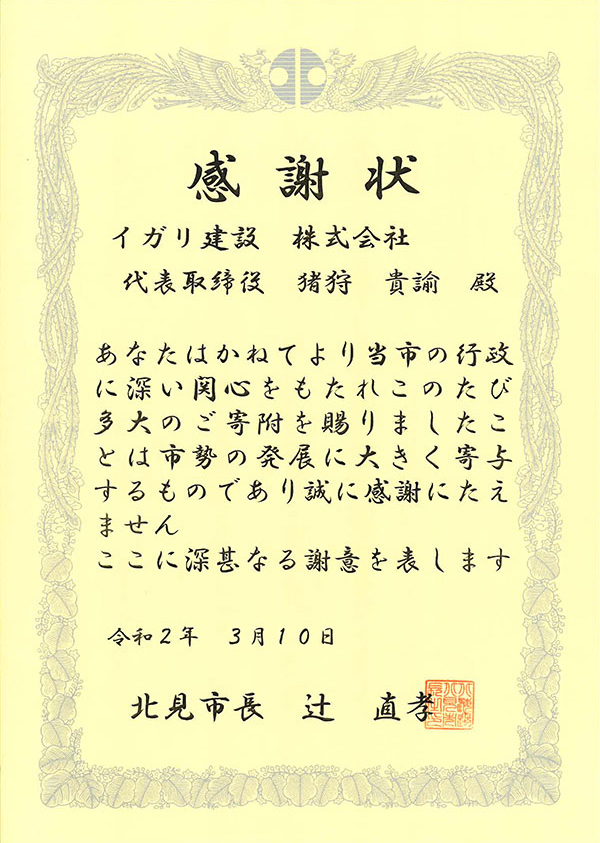 感謝状
イガリ建設　株式会社
代表取締役　猪狩　貴諭　殿
あなたはかねてより当市の行政
に深い関心をもたれこのたび
多大のご寄附を賜りましたこ
とは市勢の発展に大きく寄与
するものであり誠に感謝にたえ
ません
ここに深甚なる謝意を表します
令和２年　３月１０日
北見市長　辻　直孝